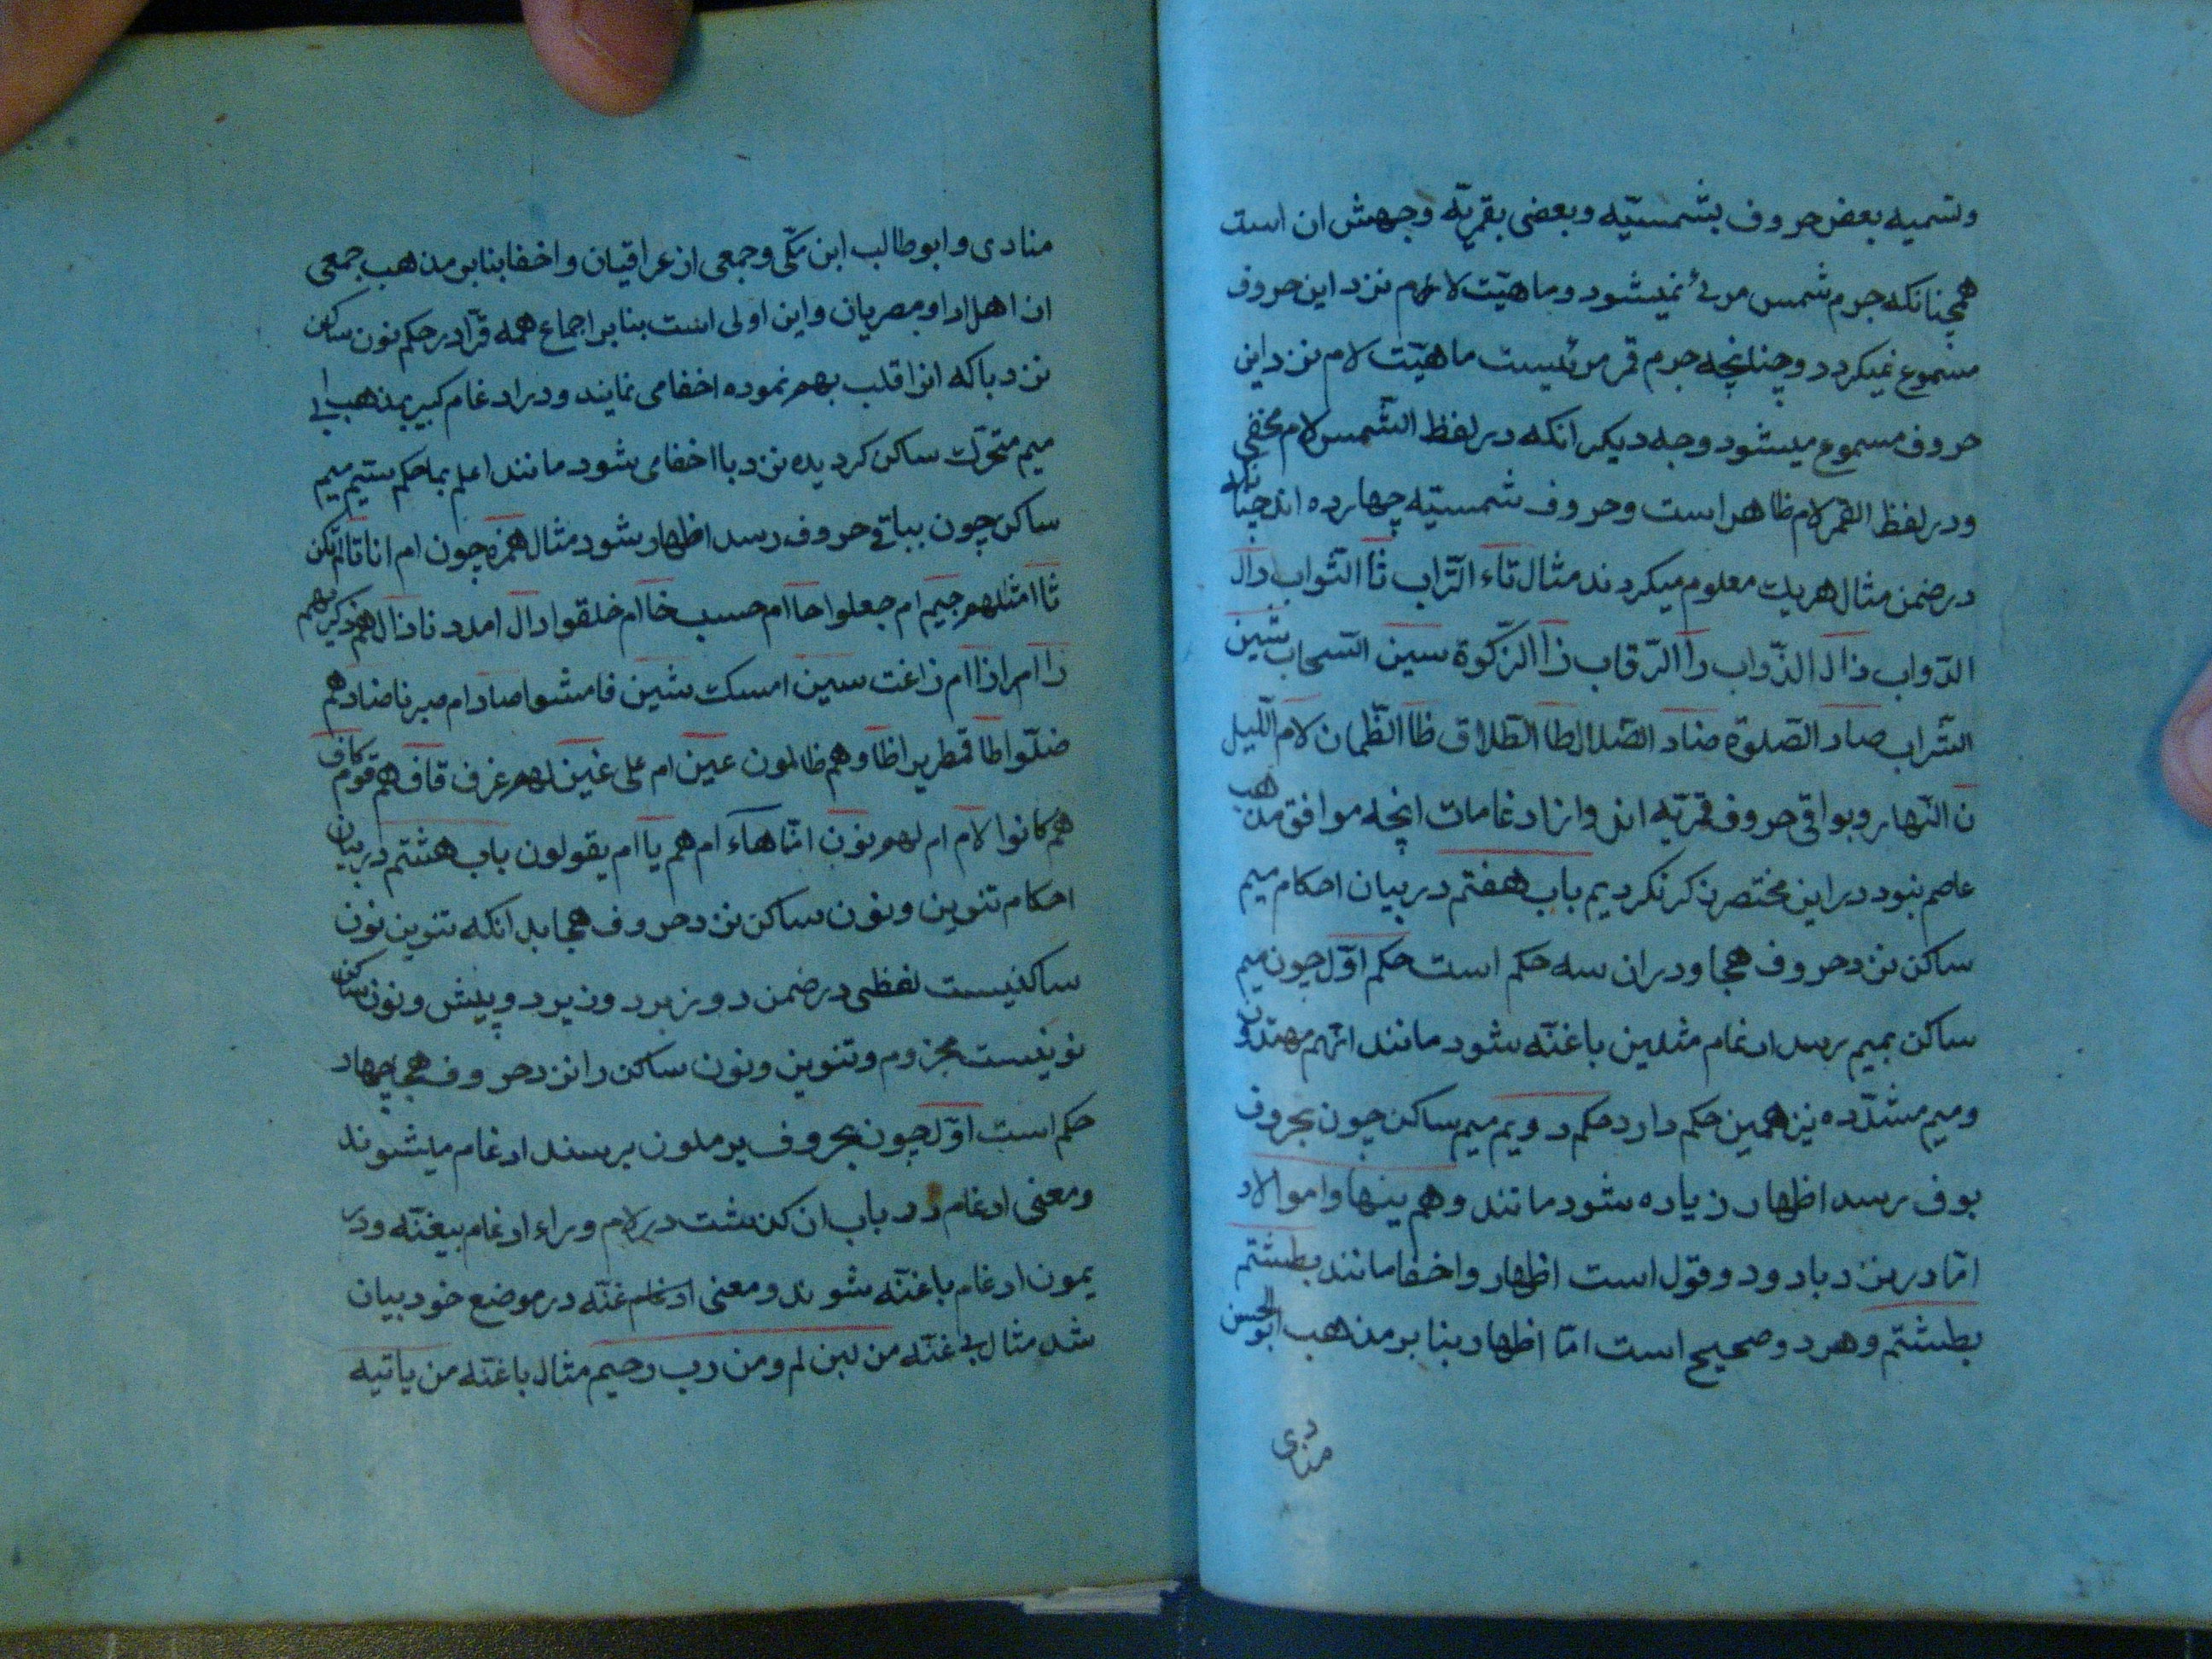 وتسمیه بعض حروف بشمسیّه وبعضی بقمریّه وجهش ان است
همچنانکه جرم شمس مرئی نمیشود وماهیّت لام نزد این حروف
مسموع نمیکردد وچنانچه جرم قمر مرئیست ماهیّت لام نزد این
حروف مسموع میشود وجه دیکر انکه در لفظ الشّمس لام مخفی
ودر لفظ القمر لام ظاهر است وحروف شمسیّه چهارده اند چنانکه
در ضمن مثال هریک معلوم میکردند مثال تاء التّراب ثا الثّواب دال
الدّواب ذال الذّواب را الرّقاب زا الزّکوة سین السّحاب شین
الشّراب صاد الصّلوة ضاد الضّلال طا الطّلاق ظا الظّمان لام اللّیل
ن النّهار وبواقی حروف قمریّه اند واز ادغامات انچه موافق مذهب
عاصم نبود در این مختصر ذکر نکردیم باب هفتم در بیان احکام میم
ساکن نزد حروف هجا ودر ان سه حکم است حکم اوّل چون میم
ساکن بمیم رسد ادغام مثلین باغنّه شود مانند انّهم مهتدون
ومیم مشدّده نیز همین حکم دارد حکم دویم میم ساکن چون بحروف
بوف رسد اظهار زیاده شود مانند وهم ینها وامو الاد
امّا در نزد با دو قول است اظهار واخفا مانند بطشتم
بطشتم وهر دو صحیح است امّا اظهار بنابر مذهب ابو الحسن
منادی
منادی وابوطالب ابن مکّی وجمعی از عراقیان واخفا بنابر مذهب جمعی
از اهل ادا ومصریان واین اولی است بنابر اجماع همه قرّا در حکم نون ساکن
نزد با که انرا قلب بهم نموده اخفا می نمایند ودر ادغام کبیر بمذهب ابی
میم متحرّک ساکن کردیده نزد با اخفا می شود مانند اعلم بما حکم ستیم میم
ساکن چون بباقی حروف رسد اظهار شود مثال همزه چون ام انا تا الم تکن
ثا امثلهم جیم ام جعلوا حا ام حسب خا ام خلقوا دال امددنا ذال هم ذکرهم
را امرا زا ام زاغت سین امسک شین فامشوا صاد ام صبرنا ضاد هم
ضلّوا طا قمطریرا ظا وهم ظالمون عین ام علی غین لهم غرف قاف هم قوم کاف
هم کانوا لام ام لهم نون امّا هاء ام هم یا ام یقولون باب هشتم در بیان
احکام تنوین ونون ساکن نزد حروف هجا بدانکه تنوین نون
ساکنیست لفظی در ضمن دو زبر دو زیر دو پیش ونون ساکن
نونیست مجزوم وتنوین ونون ساکن را نزد حروف هجا چهار
حکم است اوّل چون بحروف یرملون برسند ادغام میشوند
ومعنی ادغام در باب ان کذشت در لام وراء ادغام بیغنّه ودر
یمون ادغام باغنّه شوند ومعنی ادغام غنّه در موضع خود بیان
شد مثال بی غنّه من لبن لم ومن رب رحیم مثال باغنّه من یاتیه